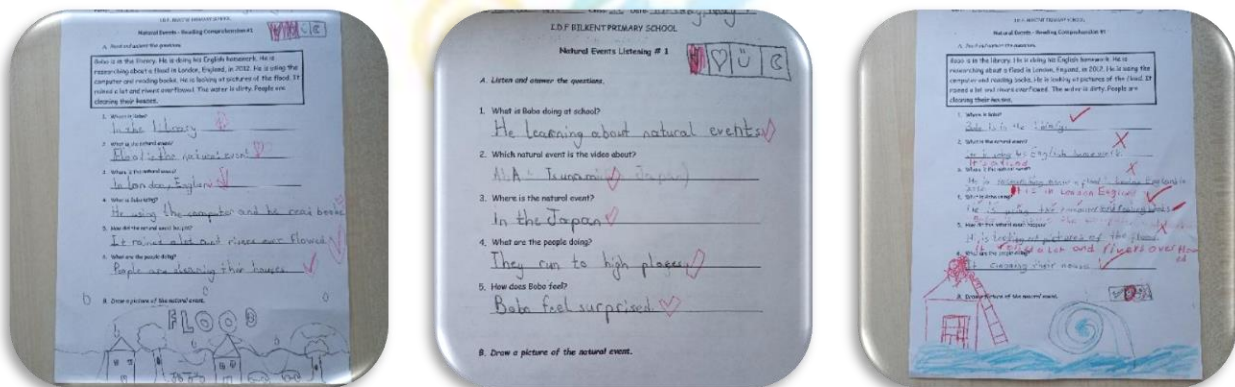 I.D.F BILKENT PRIMARY SCHOOL
Natural Events - Reading Comprehension #1
A. Read and answer the questions.
Babo is in the library. He is doing his English homework. He is
researching about a flood in London, England, in 2012. He is using the
computer and reading books. He is looking at pictures of the flood. It
rained a lot and rivers overflowed. The water is dirty. People are
cleaning their houses.
1. Where is Babo?
In the library
2. What is the natural event?
Flood is the natural event
3. Where is the natural event?
In London, England
4. What is Babo doing?
He using the computer and he read books
5. How did the natural event happen?
It rained alot and rivers over flowed
6. What are the people doing?
People are cleaning their houses
B. Draw a picture of the natural event.
FLOOD
I.D.F BILKENT PRIMARY SCHOOL
Natural Events Listening # 1
A. Listen and answer the questions.
1. What is Babo doing at school?
He learning about natural events
2. Which natural event is the video about?
Tsunami
3. Where is the natural event?
In the Japan
4. What are the people doing?
They run to high places
5. How does Babo feel?
Babo feel surprised.
B. Draw a picture of the natural event.
I.D.F BILKENT PRIMARY SCHOOL
Natural Events - Reading Comprehension #1
A. Read and answer the questions.
Babo is in the library. He is doing his English homework. He is
researching about a flood in London, England, in 2012. He is using the
computer and reading books. He is looking at pictures of the flood. It
rained a lot and rivers overflowed. The water is dirty. People are
cleaning their houses.
1. Where is Babo?
Babo is in the library.
2. What is the natural event?
his English homework.
It's a flood
3. Where is the natural event?
He is researching about a flood in London England in
It is in London England
4. What is Babo doing?
He is using the computer and reading books
5. How did the natural event happen?
He is looking at pictures of the flood
It rained a lot and rivers overflowed
6. What are the people doing?
It cleaning their houses
B. Draw a picture of the natural event.